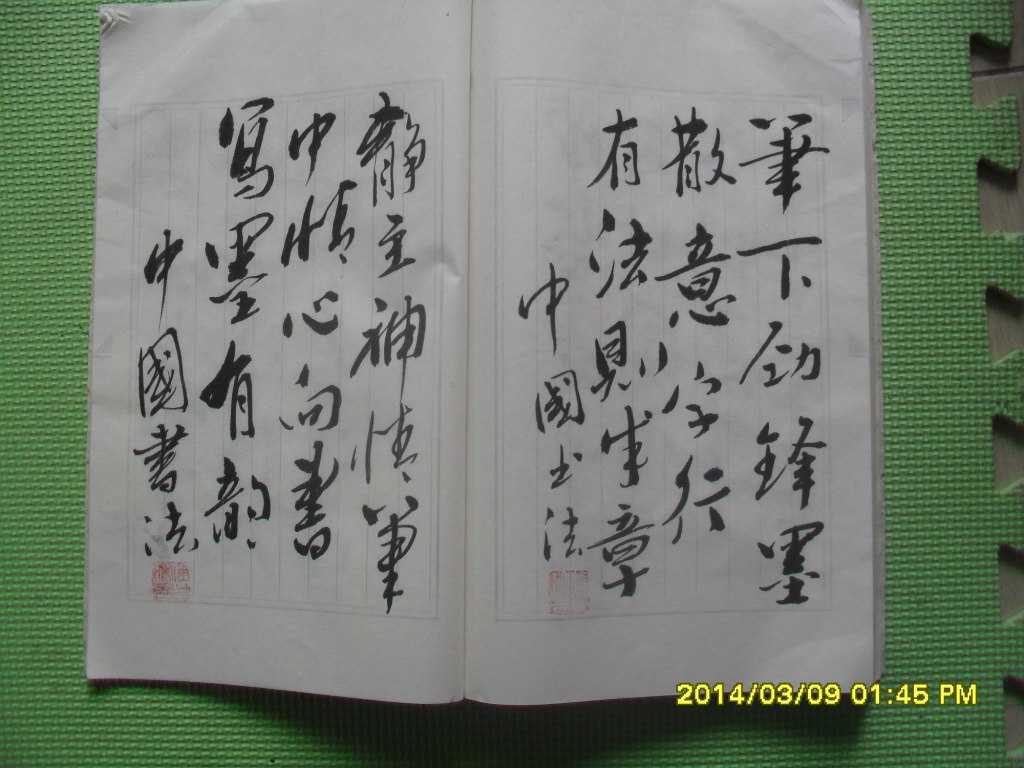 筆下劲鋒墨
散意字行
有法則成章
中國书法
靜主神情筆
中情心向書
寫墨有韻
中國書法
2014/03/09 01:45 PM